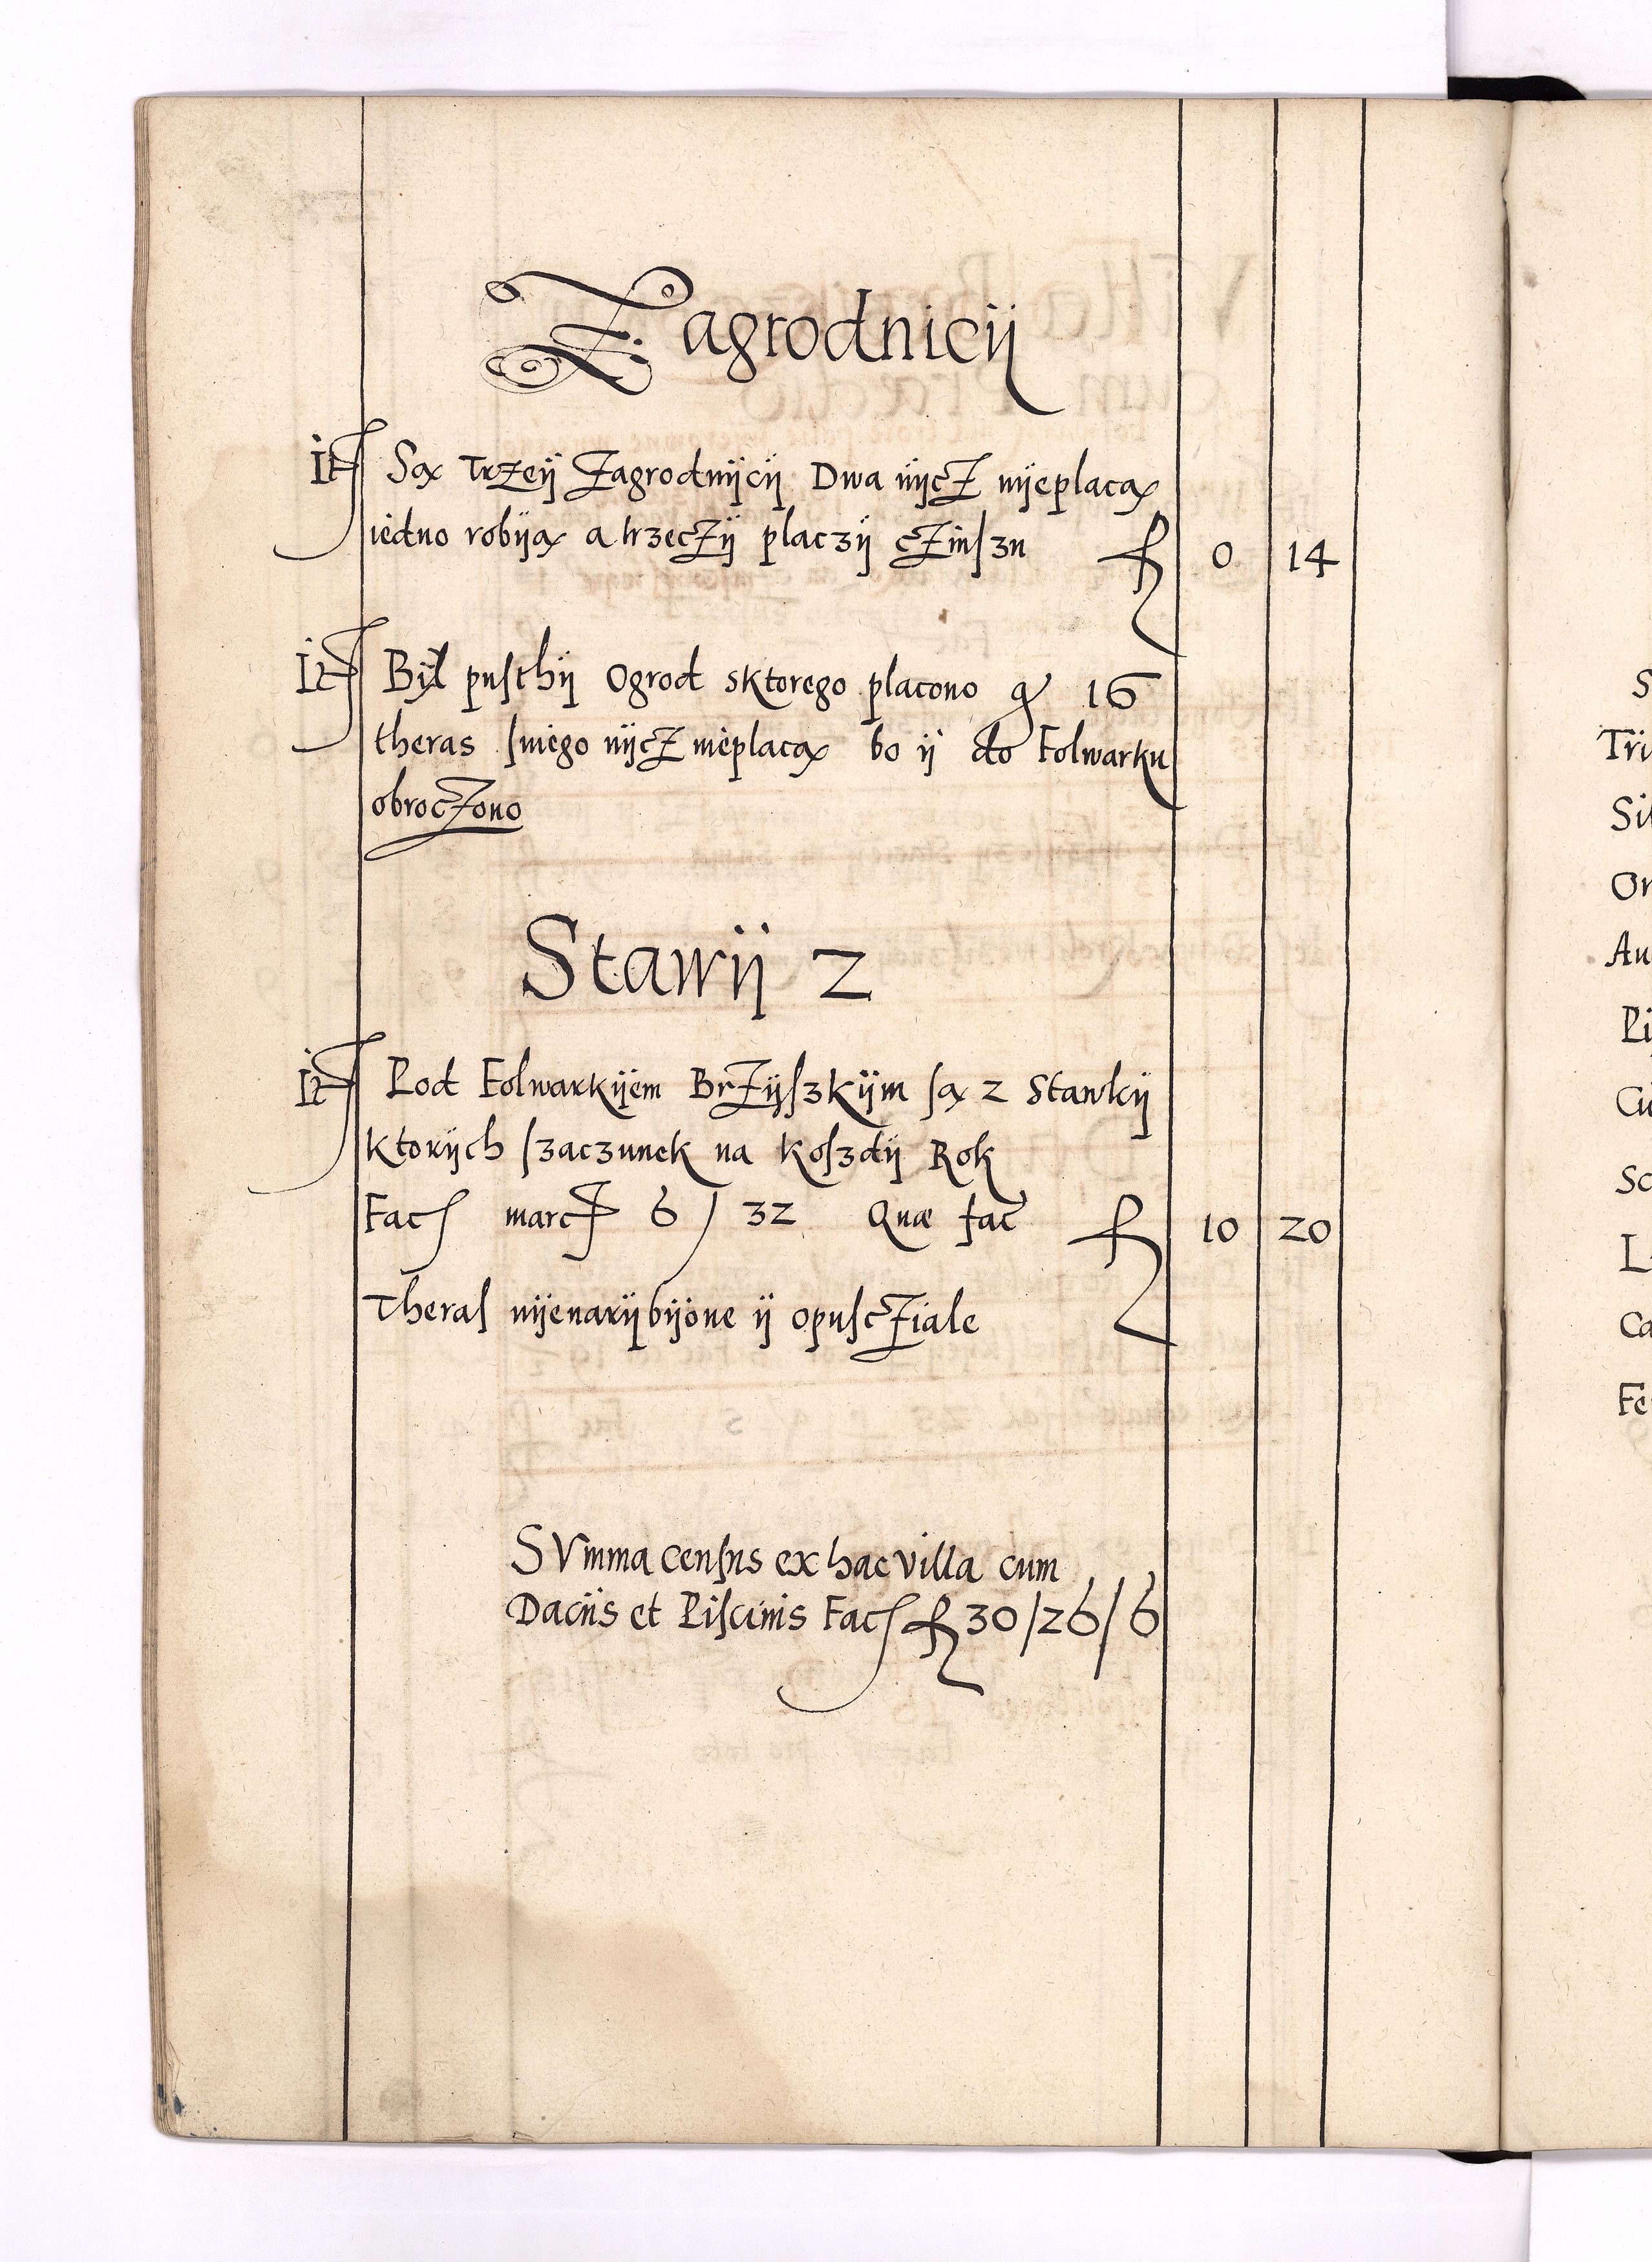 Zagrodnicÿ
It Są TrZeÿ Zagrodnÿcÿ Dwa nÿcZ nÿeplacą
iedno robÿą a trzecZÿ placzÿ cZinſzu fl 0 14
It Bÿł puſthÿ Ogrod sktorego placono gr 16
theras ſniego nÿcZ nieplacą bo ÿ do Folwarku
obrocZono
Stawÿ 2
It Pod Folwarkÿem BrZÿſzkÿm ſą 2 Stawkÿ
ktorÿch ſzaczunek na Koſzdÿ Rok
Fac marc 6 / 32 Quæ fac fl 10 20
Theraſ nÿenarÿbÿone ÿ opuſcZiale
SVmma cenſus ex hac villa cum
Daciis et Piſcinis Fac fl 30/26/6
S
Tri
Sil
Or
Au
Pi
Cu
Sc
L
Ca
Fe